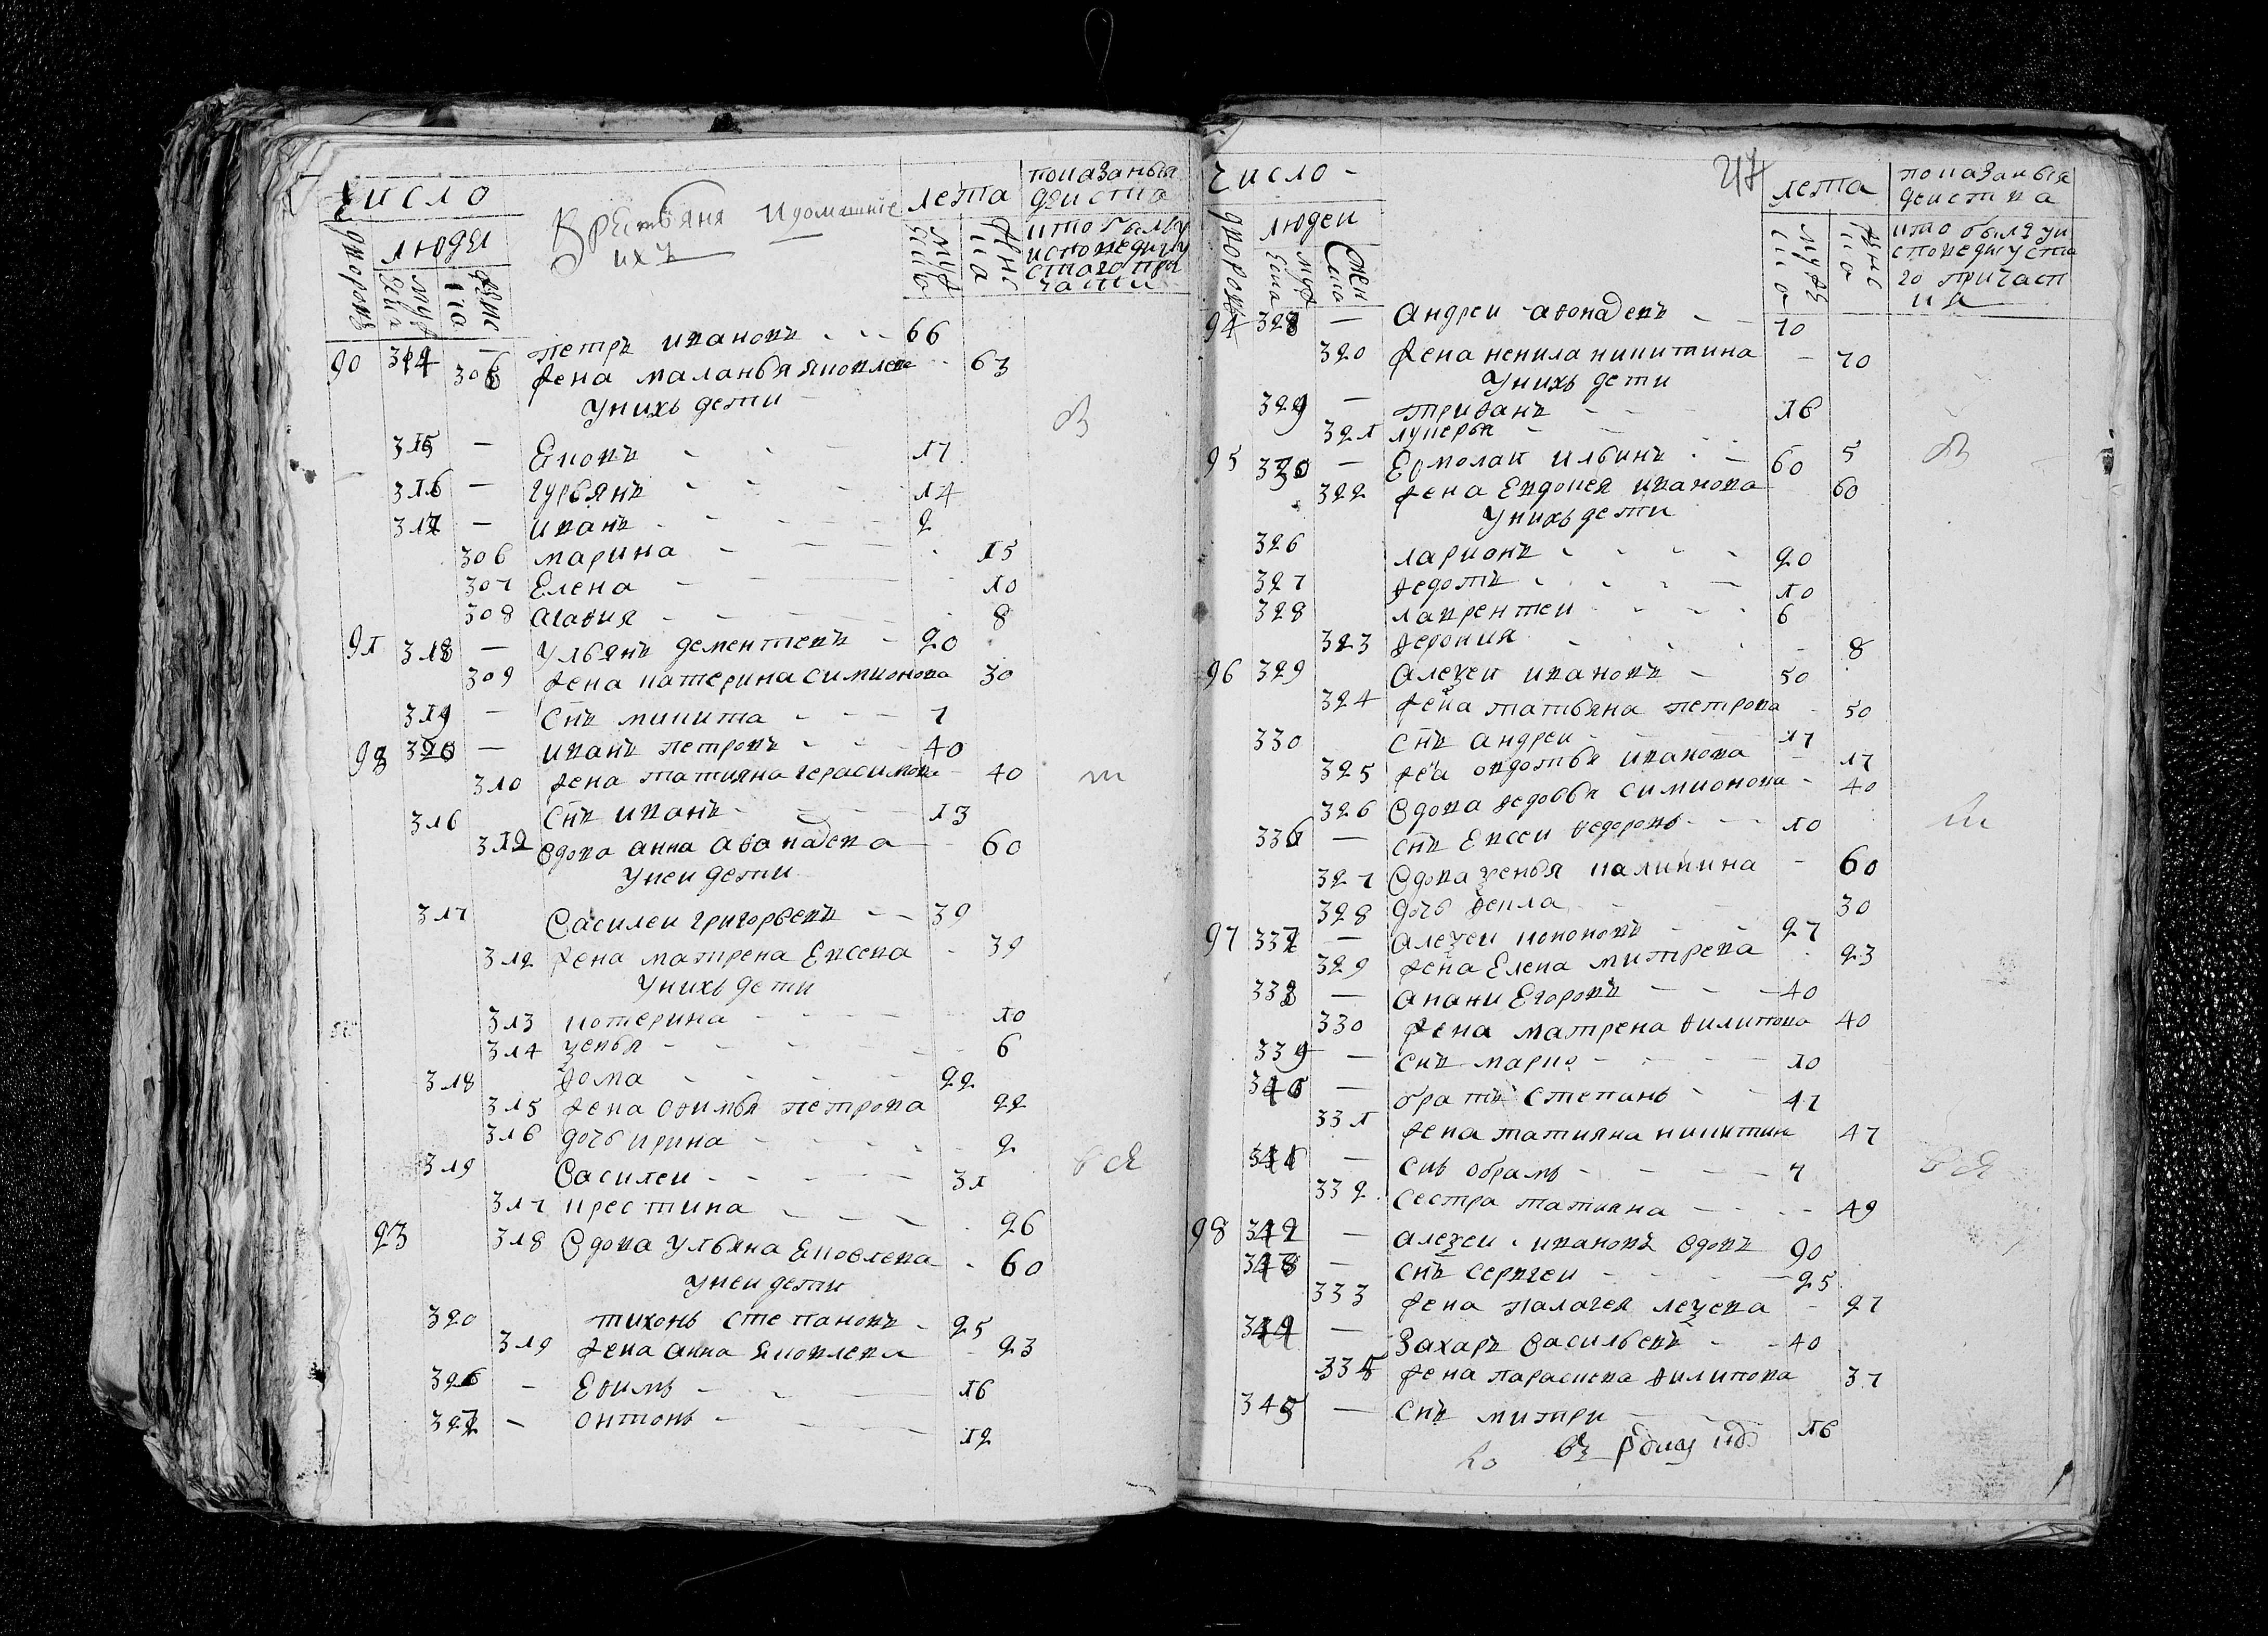 число
дворовъ
людеи
муж еска
женс ка
крестьяня и домашние
ихъ
лета
муж еска
женс ка
показанья
деиства
кто былъ у
исповеди и у
стаго при
части
90 314 — петръ ивановъ 66
305 жена маланья яковлева 63
у нихъ дети
315 — Еновъ 17
316 — гурьянъ 14
317 — иванъ 2
306 марина 15
307 Елена 10
308 агафия 8
91 318 — ульянъ дементевъ 20
309 жена катерина симионова 30
319 — снъ микита 7
92 320 — иванъ петровъ 40
310 жена татияна герасимова 40
316 снъ иванъ 13
312 вдова анна афанадева 60
у неи дети
317 василеи григорьевъ 39
312 жена матрена Евсева 39
у нихъ дети
313 катерина 10
314 ѯенья 6
318 фома 22
315 жена офимья петрова 22
316 дочь ирина 2
319 василеи 31
317 крестина 26
93 318 вдова ульяна Яковлева 60
у неи дети
320 тихонъ степановъ 25
319 жена анна яковлева 23
326 — Ефимъ 16
327 — онтонъ 12
число
47
дворовъ
людеи
муж еска
жен ска
лета
муж ска
женс ка
показанья
деиства
кто былъ у и
споведи у ста
го причаст
ия
94 328 — андреи афонадевъ 70
320 жена ненила никитина 70
у нихъ дети
329 — трифанъ 16
321 лукерья 5
95 330 — Ермолаи ильинъ 60
322 жена Евдокея иванова 60
у нихъ дети
326 ларионъ 20
327 федотъ 10
328 лаврентеи 6
323 феврония 8
96 329 алеѯеи ивановъ 50
324 жена татьяна петрова 50
330 снъ андреи 17
325 жеа овдотья иванова 17
326 вдова федосья симионова 40
336 — снъ Евсеи федоровъ 10
327 вдова ѯенья калинина 60
328 дочь фекла 30
97 337 — алеѯеи кононовъ 27
329 жена Елена митрева 23
338 — анани Егоровъ 40
330 жена матрена филипова 40
339 — снъ марко 10
340 — братъ степанъ 47
331 жена татияна никитина 47
341 — снъ обрамъ 4
332 сестра татияна 49
98 342 — алеѯеи ивановъ вдовъ 90
343 — снъ сергеи 25
333 жена палагея леѯева 27
344 — Захаръ васильевъ 40
335 жена параскева филипова 37
345 — снъ митри 16